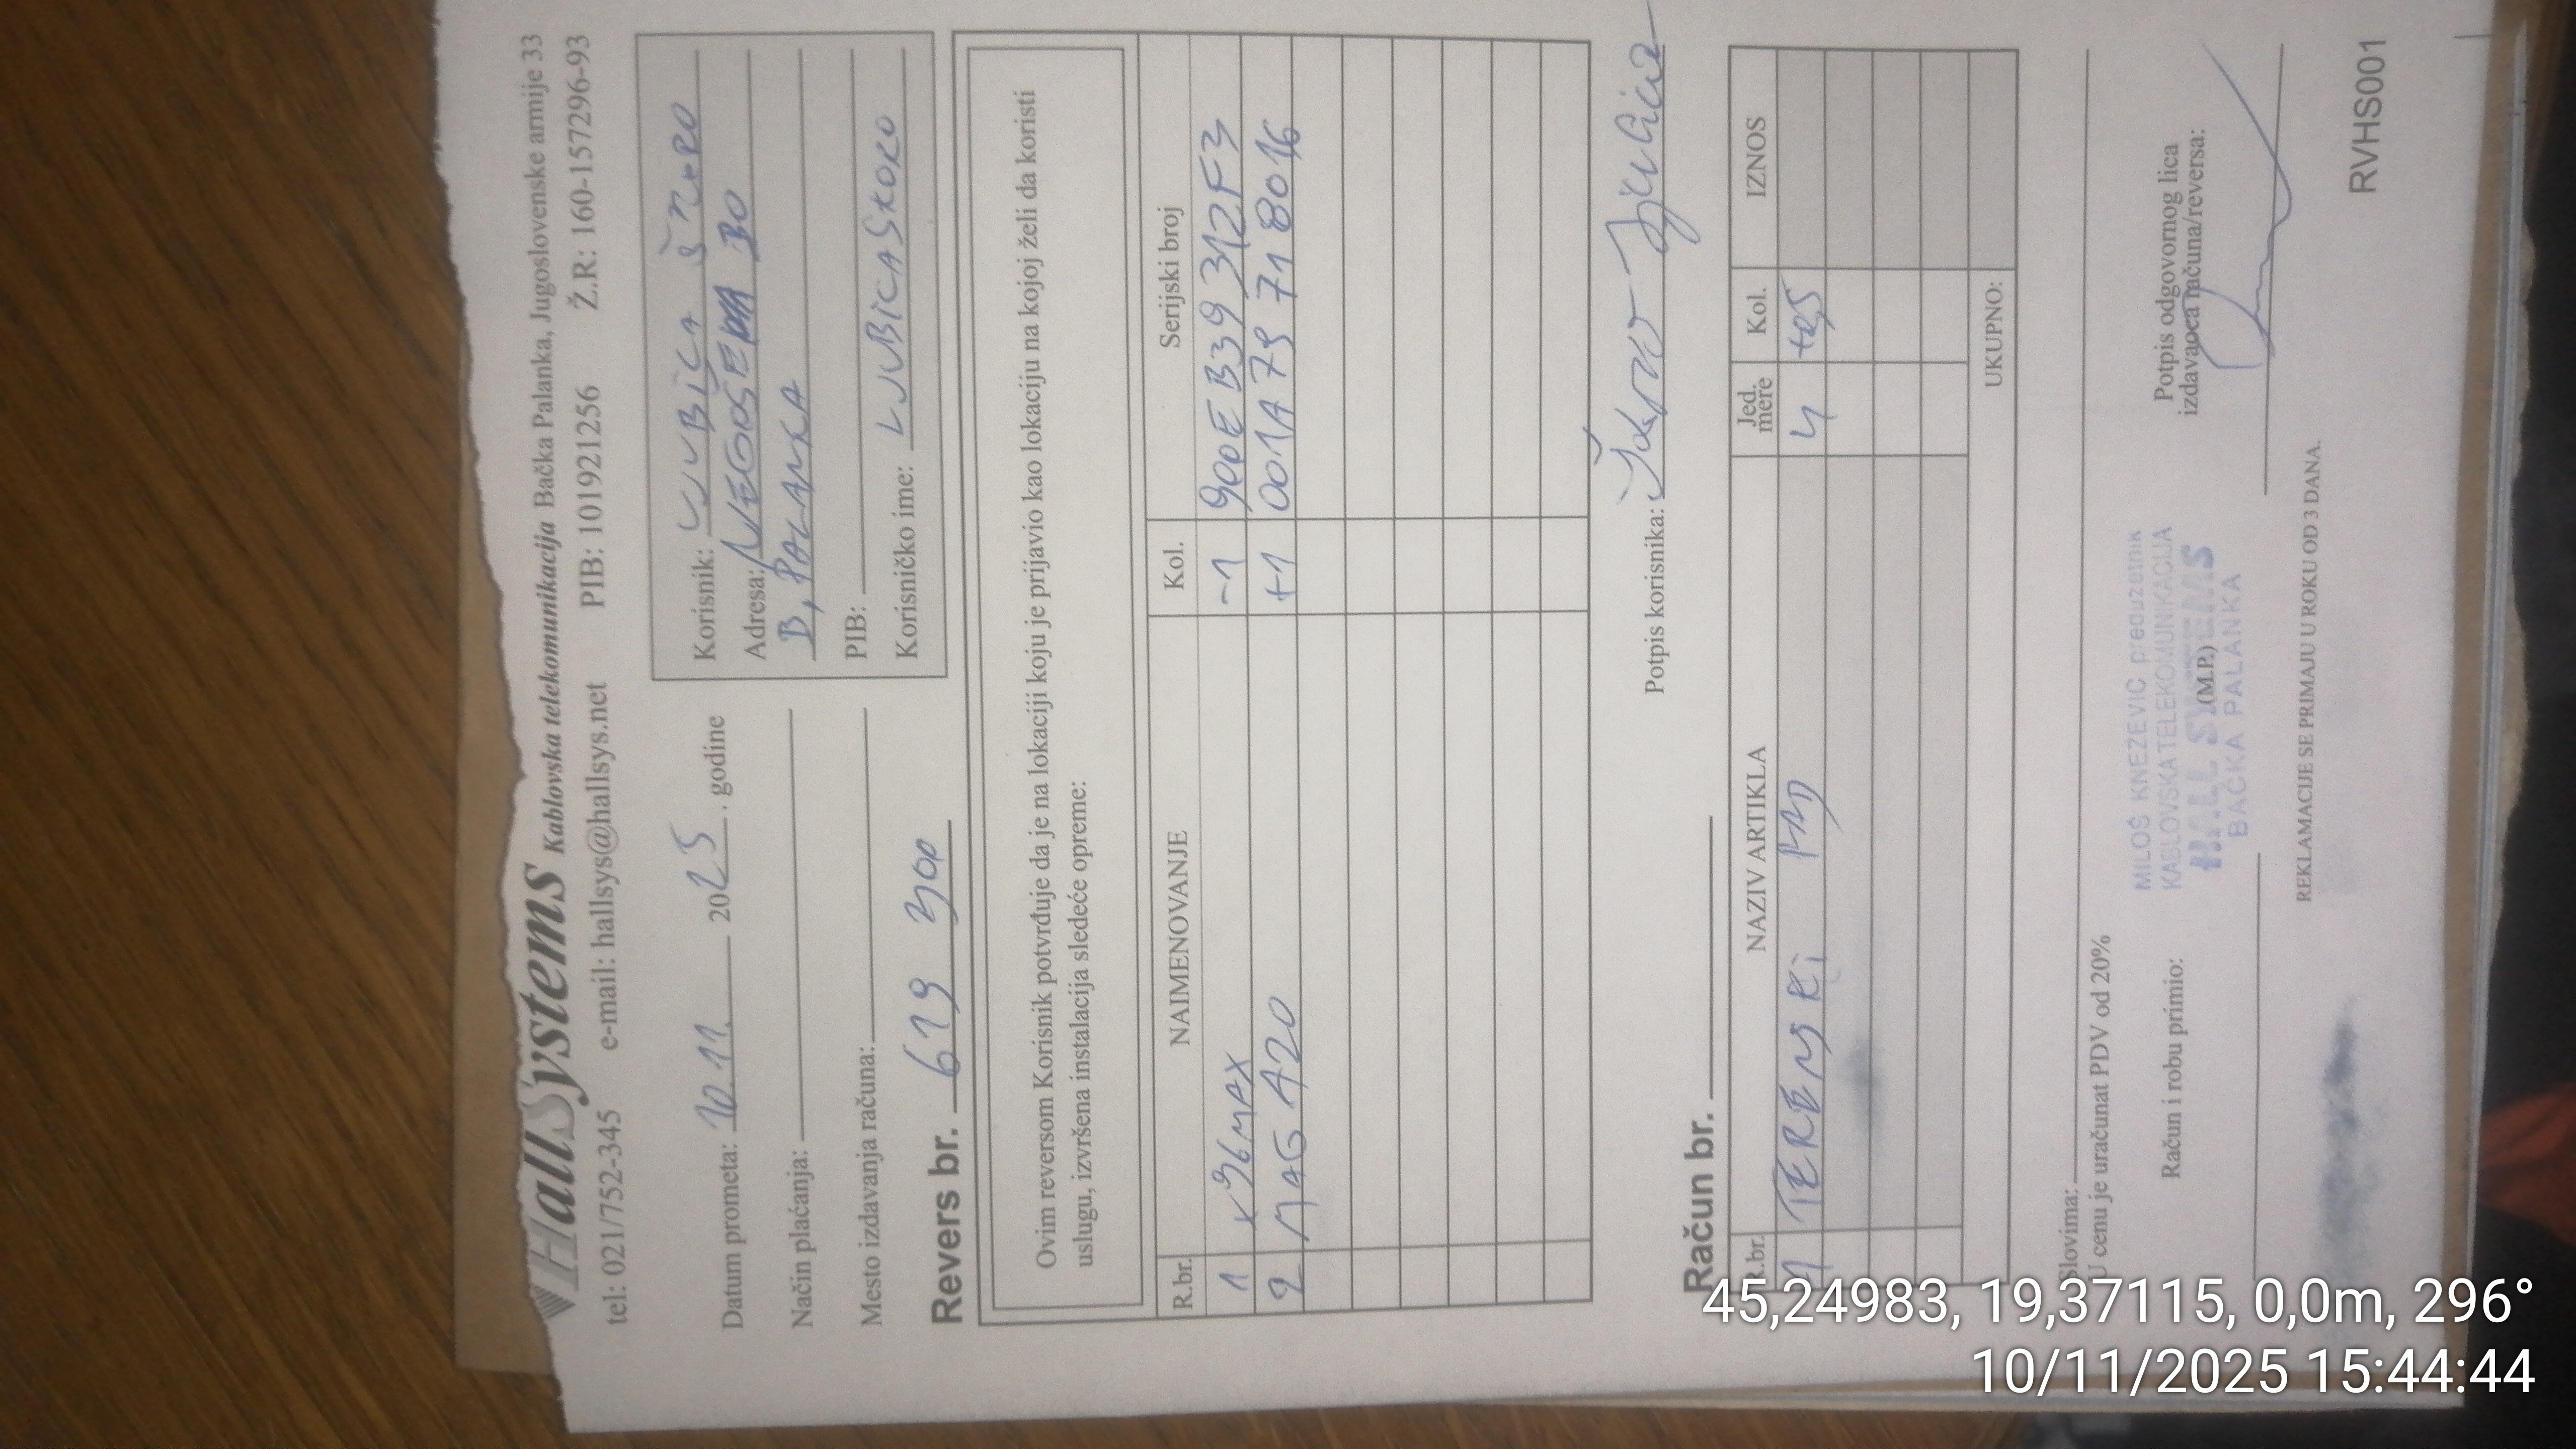 HallSystems Kablovska telekomunikacija Bačka Palanka, Jugoslovenske armije 33
tel: 021/752-345 e-mail: hallsys@hallsys.net PIB: 101921256 Ž.R: 160-157296-93
Datum prometa: 10.11. 2025. godine
Način plaćanja:
Mesto izdavanja računa:
Korisnik: LJUBICA ŠKORO
Adresa: NJEGOŠEVA 30
B, PALANKA
PIB:
Korisničko ime: LJUBICASKORO
Revers br. 619 300
Ovim reversom Korisnik potvrđuje da je na lokaciji koju je prijavio kao lokaciju na kojoj želi da koristi
uslugu, izvršena instalacija sledeće opreme:
R.br. NAIMENOVANJE Kol. Serijski broj
1 x96MAX -1 900EB39312F3
2 MAG A20 +1 001A79718016
Potpis korisnika: Škoro
Račun br.
R.br. NAZIV ARTIKLA Jed. mere Kol. IZNOS
1 TERENSKI RAD
UKUPNO:
Slovima:
U cenu je uračunat PDV od 20%
Račun i robu primio:
MILOŠ KNEZEVIC preduzetnik
KABLOVSKA TELEKOMUNIKACIJA
HALL SYSTEMS
(M.P.)
BAČKA PALANKA
Potpis odgovornog lica
izdavaoca računa/reversa:
REKLAMACIJE SE PRIMAJU U ROKU OD 3 DANA.
RVHS001
45,24983, 19,37115, 0,0m, 296°
10/11/2025 15:44:44